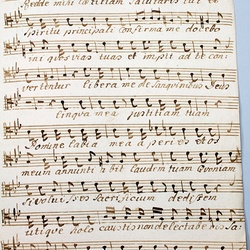 Redde mihi lætitiam salutaris tui et
Spiritu principali confirma me docebo
ini quos vias tuas et impii ad te con
vertentur libera me de sanguinibus Deus
lingua mea justitiam tuam
Domine labia mea aperies et os
meum annunti a bit laudem tuam Quoniam
si voluisses sacrificium dedissem
utique holo caustis non delectabe ris Sac